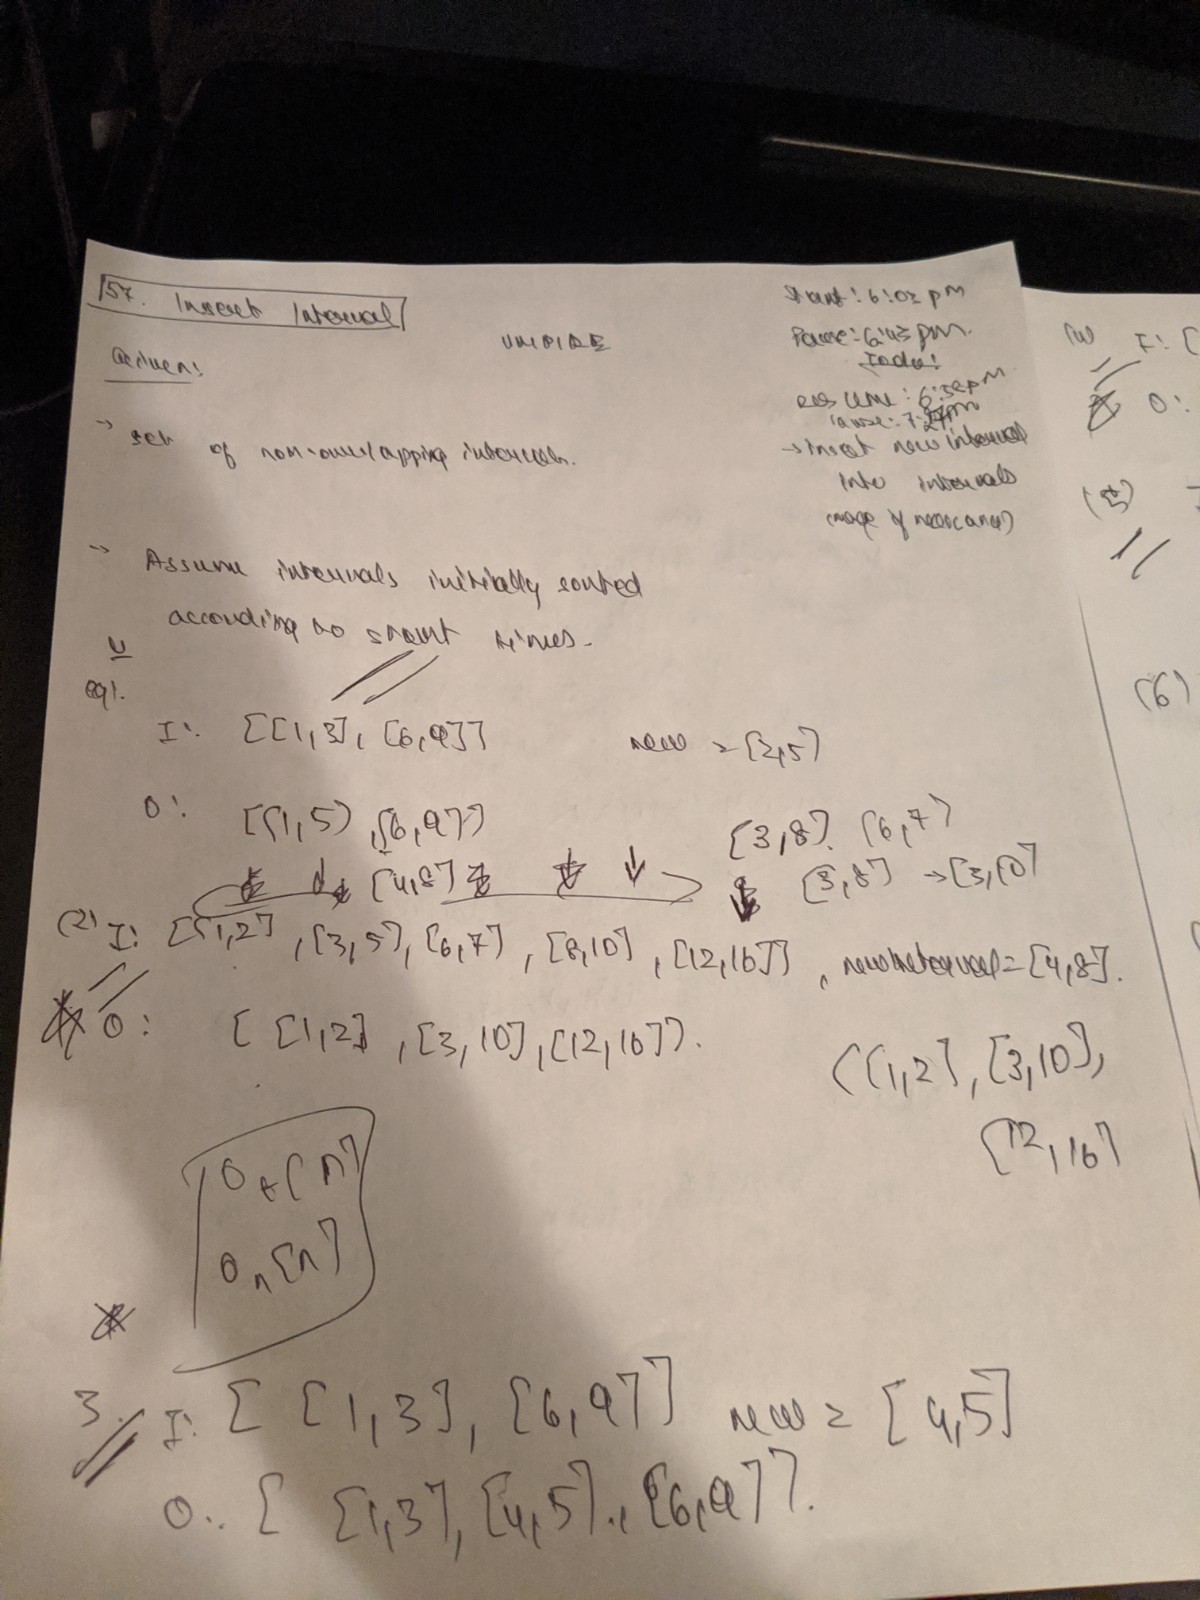 57. Insert Interval
UMPIRE
Start: 6:02 pm
Pause: 6:43 pm.
Today:
Given:
→ set of non-overlapping intervals.
→ Insert new interval
into intervals
→ Assume intervals initially sorted
according to start times.
U
eg1.
I: [[1,3], [6,9]] new = [2,5]
O: [[1,5], [6,9]]
[3,8]. [6,7]
[4,8]
[3,8] → [3,10]
(2) I: [[1,2], [3,5], [6,7], [8,10], [12,16]], newInterval = [4,8].
O: [[1,2], [3,10], [12,16]].
[[1,2], [3,10],
[12,16]
Ot[n]
On[n]
3. I: [[1,3], [6,9]] new = [4,5]
O: [[1,3], [4,5], [6,9]].
I: [
O:
(6)